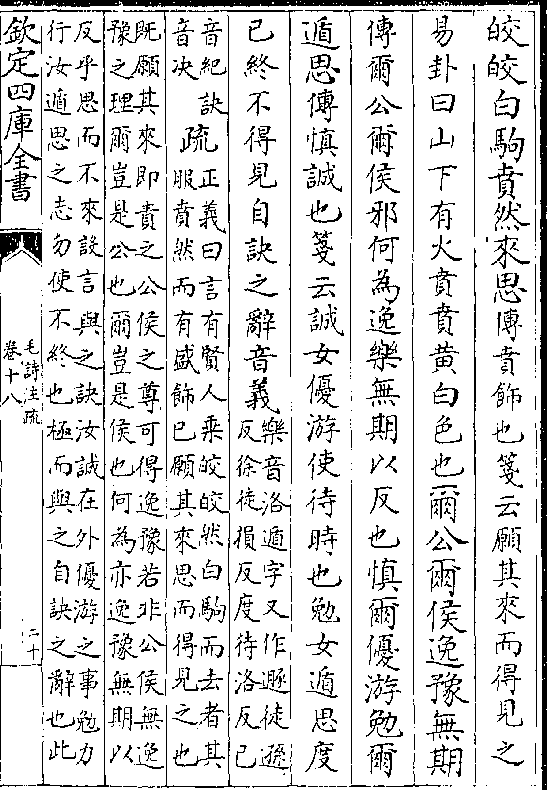 皎皎白駒賁然來思傳賁飾也箋云願其來而得見之
易卦曰山下有火賁賁黃白色也爾公爾侯逸豫無期
傳爾公爾侯邪何為逸樂無期以反也慎爾優游勉爾
遁思傳慎誠也箋云誠女優游使待時也勉女遁思度
已終不得見自訣之辭音義
樂音洛遁字又作遯徒遜
反徐徒損反度待洛反已
音紀訣
音决
疏
正義曰言有賢人乘皎皎然白駒而去者其
服賁然而有盛飾已願其來思而得見之也
既願其來即責之公侯之尊可得逸豫若非公侯無逸
豫之理爾豈是公也爾豈是侯也何為亦逸豫無期以
反乎思而不來設言與之訣汝誠在外優游之事勉力
行汝遁思之志勿使不終也極而與之自訣之辭也此
欽定四庫全書
毛詩注疏
卷十八
二十